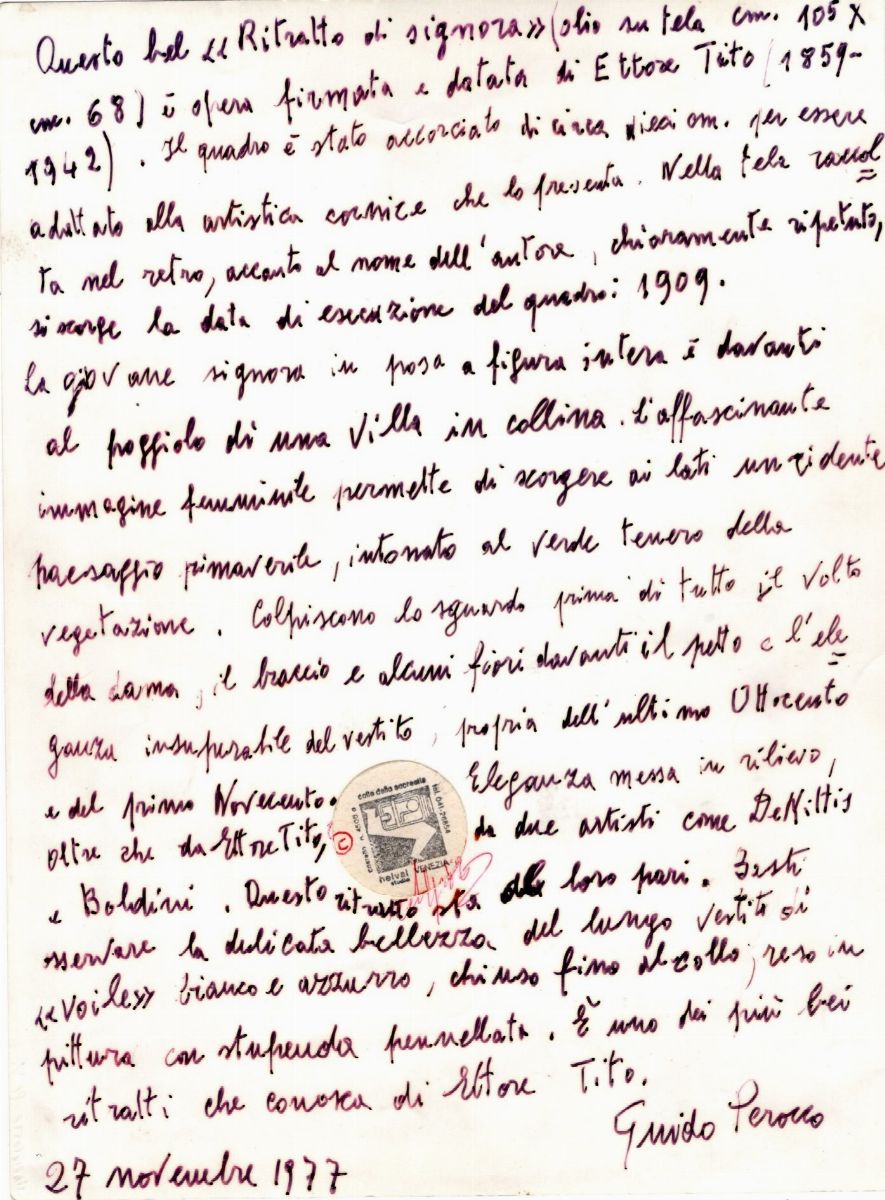 Questo bel «Ritratto di signora» (olio su tela cm. 105 x
cm. 68) è opera firmata e datata di Ettore Tito (1859-
1942). Il quadro è stato accorciato di circa dieci cm. per essere
adattato alla artistica cornice che lo presenta. Nella tela raccol=
ta nel retro, accanto al nome dell'autore, chiaramente ripetuto,
si scorge la data di esecuzione del quadro: 1909.
La giovane signora in posa a figura intera è davanti
al poggiolo di una villa in collina. L'affascinante
immagine femminile permette di scorgere ai lati un ridente
paesaggio primaverile, intonato al verde tenero della
vegetazione. Colpiscono lo sguardo prima di tutto il volto
della dama, il braccio e alcuni fiori davanti il petto e l'ele=
ganza insuperabile del vestito, propria dell'ultimo Ottocento
e del primo Novecento. Eleganza messa in rilievo,
oltre che da Ettore Tito, da due artisti come De Nittis
e Boldini. Questo ritratto sta al loro pari. Basti
osservare la delicata bellezza del lungo vestito di
«voile» bianco e azzurro, chiuso fino al collo, reso in
pittura con stupenda pennellata. È uno dei più bei
ritratti che conosca di Ettore Tito.
Guido Perocco
27 novembre 1977
calle della sacrestia
tel. 041.
helval
studio
VENEZIA
©